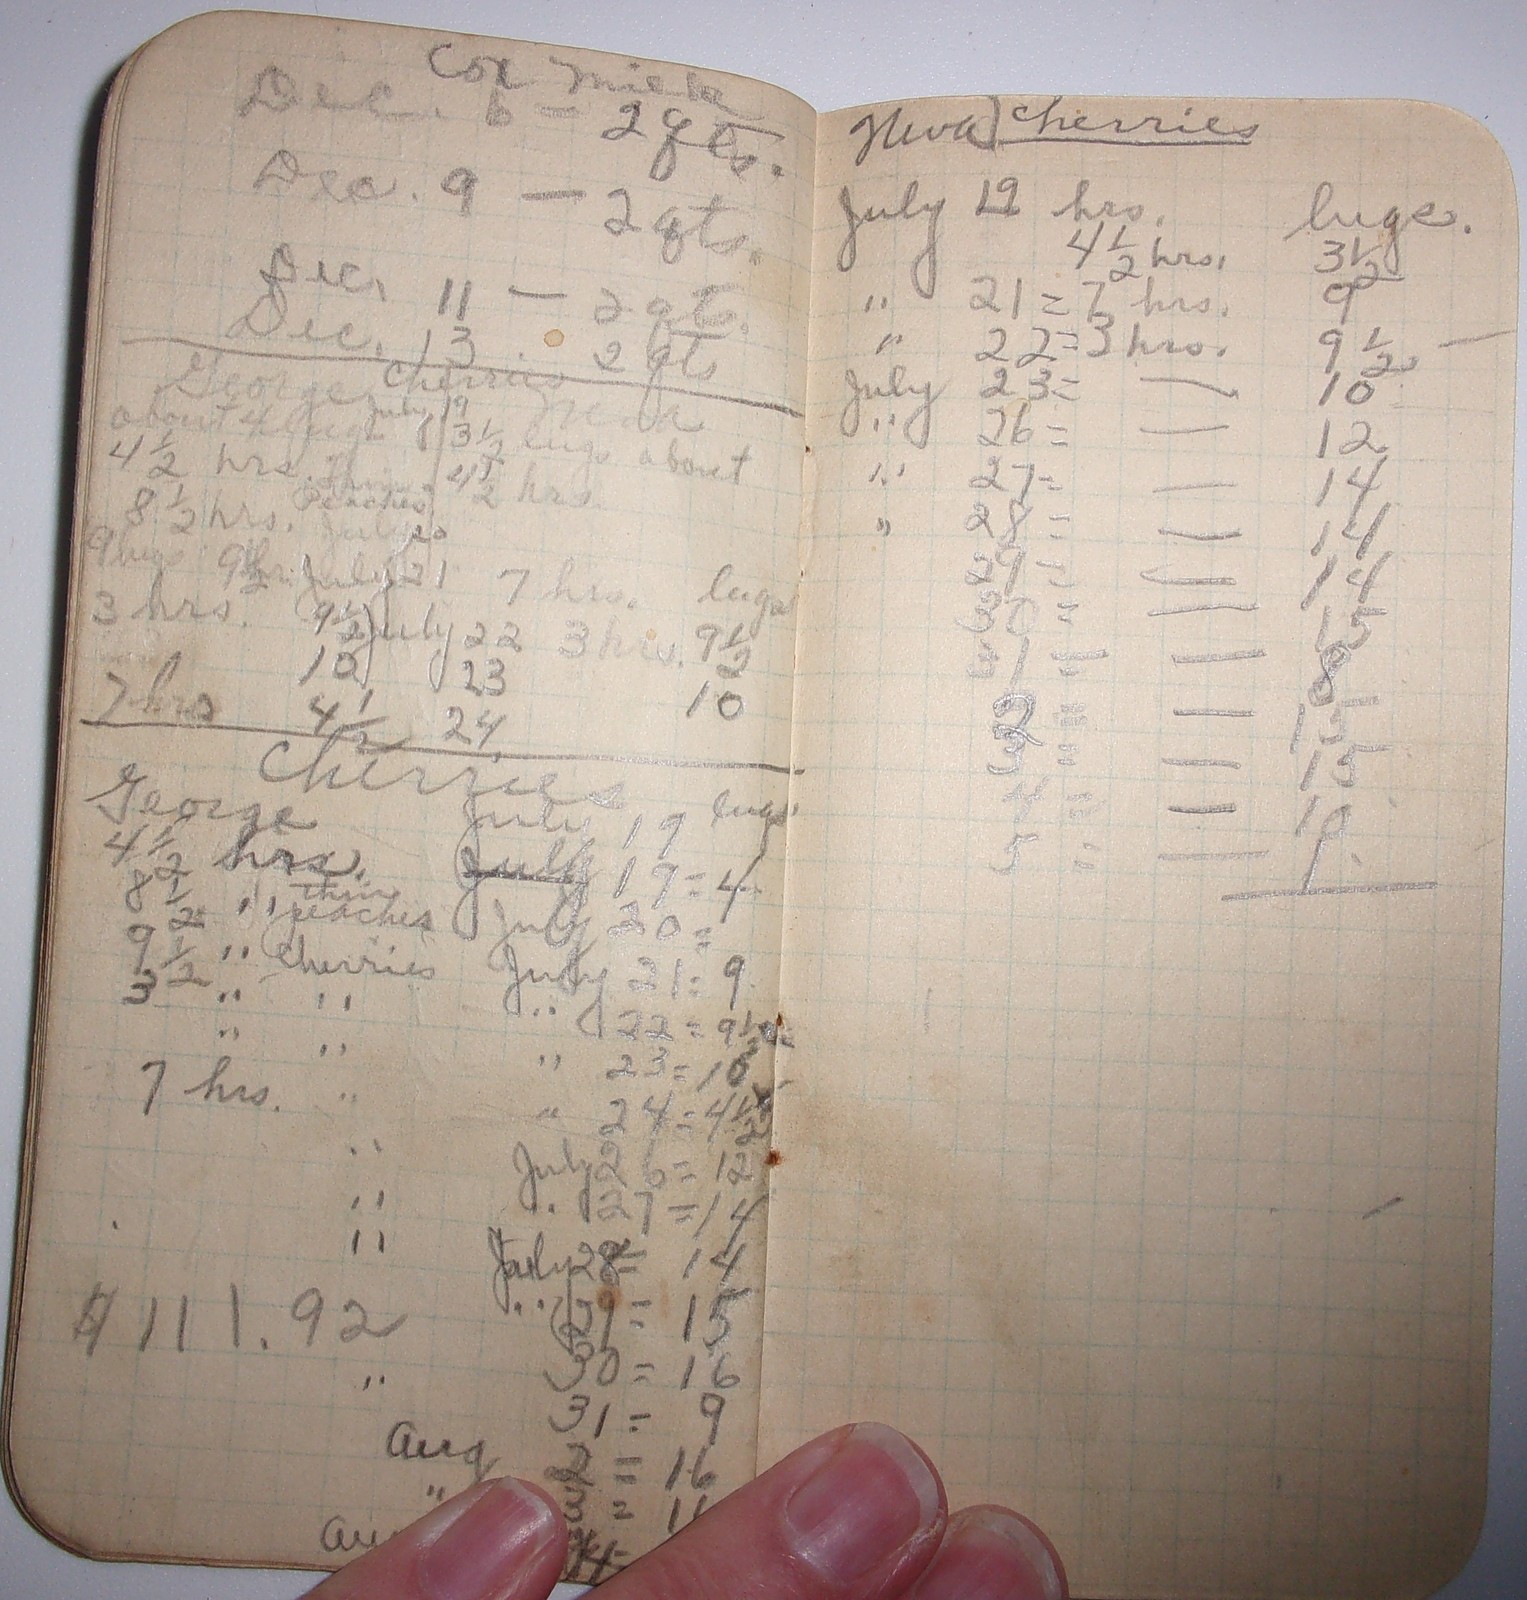 Cox Milk
Dec. 6 — 2 qts.
Dec. 9 — 2 qts.
Dec. 11 — 2 qts.
Dec. 13. 2 qts
George Cherries
about 4 lugs July 19 3 1/2 lugs about
4 1/2 hrs. Thin 4 1/2 hrs.
8 1/2 hrs. Peaches July 20
9 lugs 9 1/2 hr. July 21 7 hrs. lugs
3 hrs. 9 1/2 July 22 3 hrs. 9 1/2
10 23 10
7 hrs 4 1/2 24
Cherries
George July 19 lugs
4 1/2 hrs. July 19 = 4
8 1/2 " thin peaches July 20 =
9 1/2 " Cherries July 21 = 9
3 " " " 22 = 9 1/2
" " " 23 = 10
7 hrs. " " 24 = 4 1/2
" July 26 = 12
" " 27 = 14
" July 28 = 14
$111.92 " 29 = 15
" 30 = 16
31 = 9
Aug 2 = 16
" 3 =
4 =
Neva Cherries
July 19 hrs. lugs.
4 1/2 hrs. 3 1/2
" 21 = 7 hrs. 9
" 22 = 3 hrs. 9 1/2
July 23 = — 10
" 26 = — 12
" 27 = — 14
" 28 = — 14
29 = — 14
30 = — 15
31 = — 8
2 = — 15
3 = — 15
4 = — 10
5 = — 1.